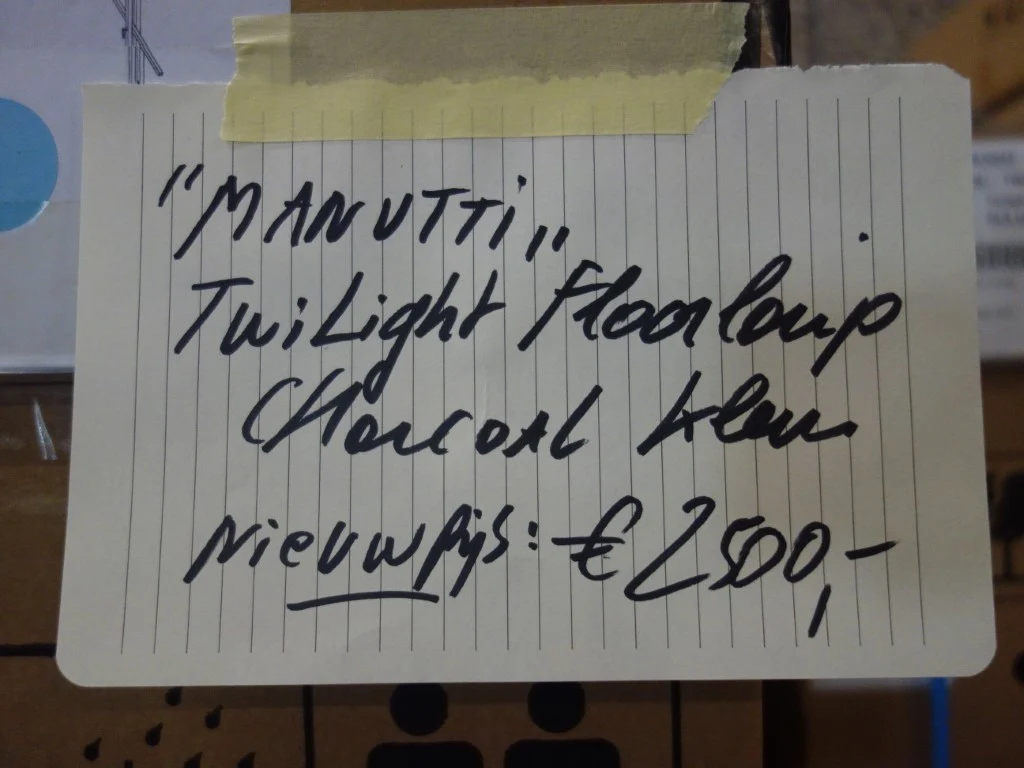 "MANUTTI„
TwiLight Floorlamp
CHarcoal klein
Nieuwprijs: € 2500,-